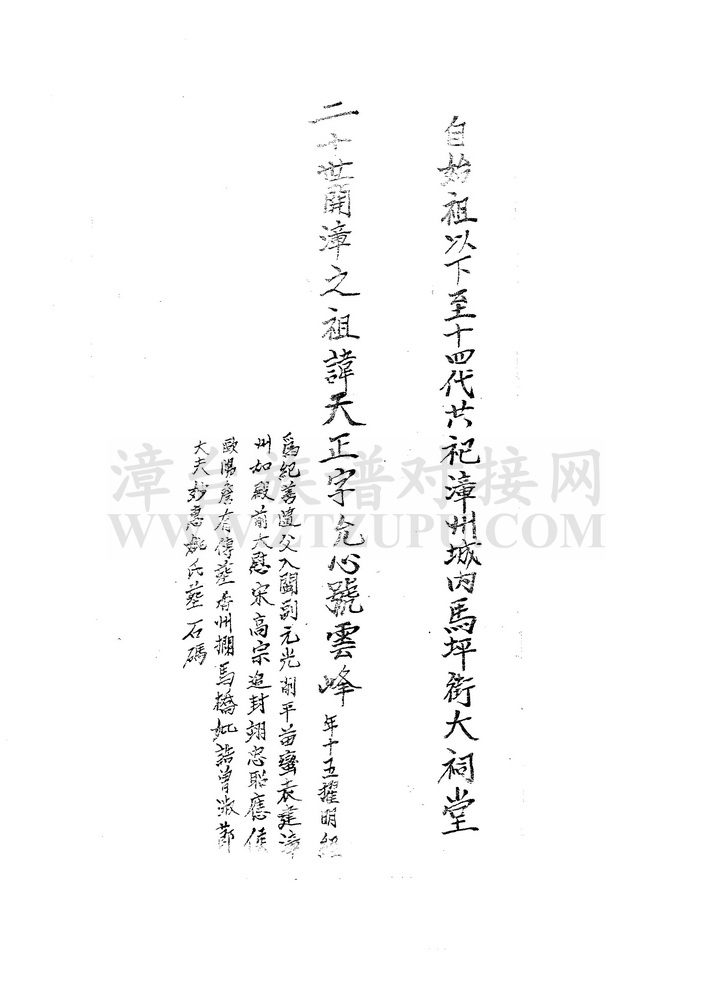 自始祖以下至十四代共祀漳州城内馬坪街大祠堂
二十世開漳之祖諱天正字允心號雲峰
年十五擢明經
爲紀善随父入閩副元光削平苗蠻表建漳
州加殿前大慰宋高宗追封翊忠昭應侯
歐陽詹有傳塟 州攔馬橋妣誥曾淑鄭
大夫妙惠姚氏塟石碼
漳台族谱对接网
WWW.ZTZUPU.COM